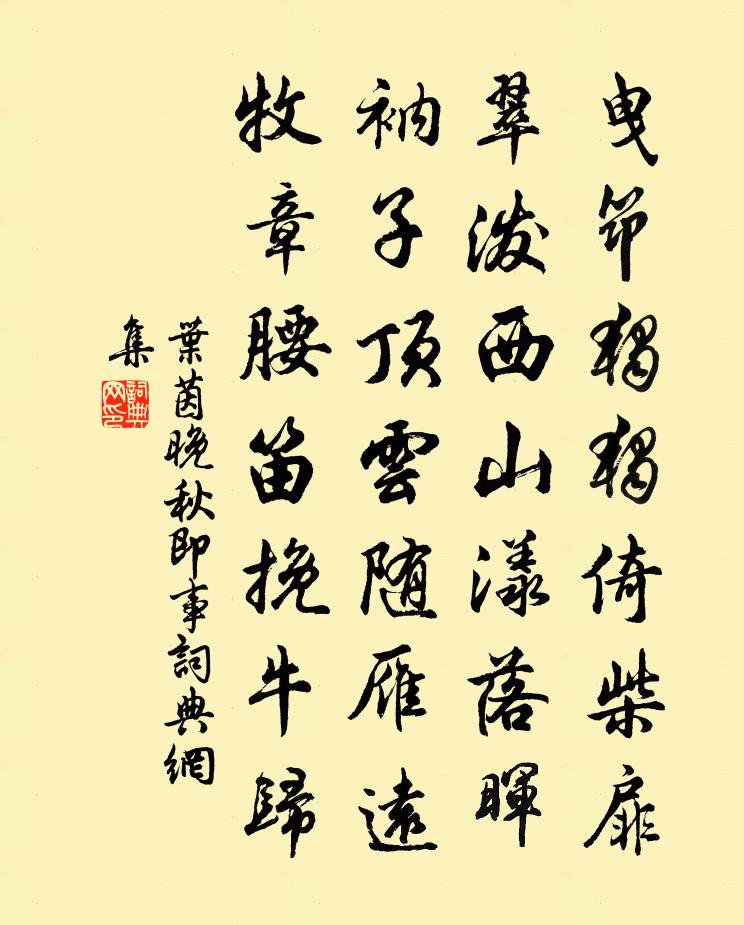 曳筇獨獨倚柴扉
翠泼西山漾落暉
衲子頂雲随雁遠
牧章腰笛挽牛歸
葉茵晚秋即事詞典網
集
詞典网印